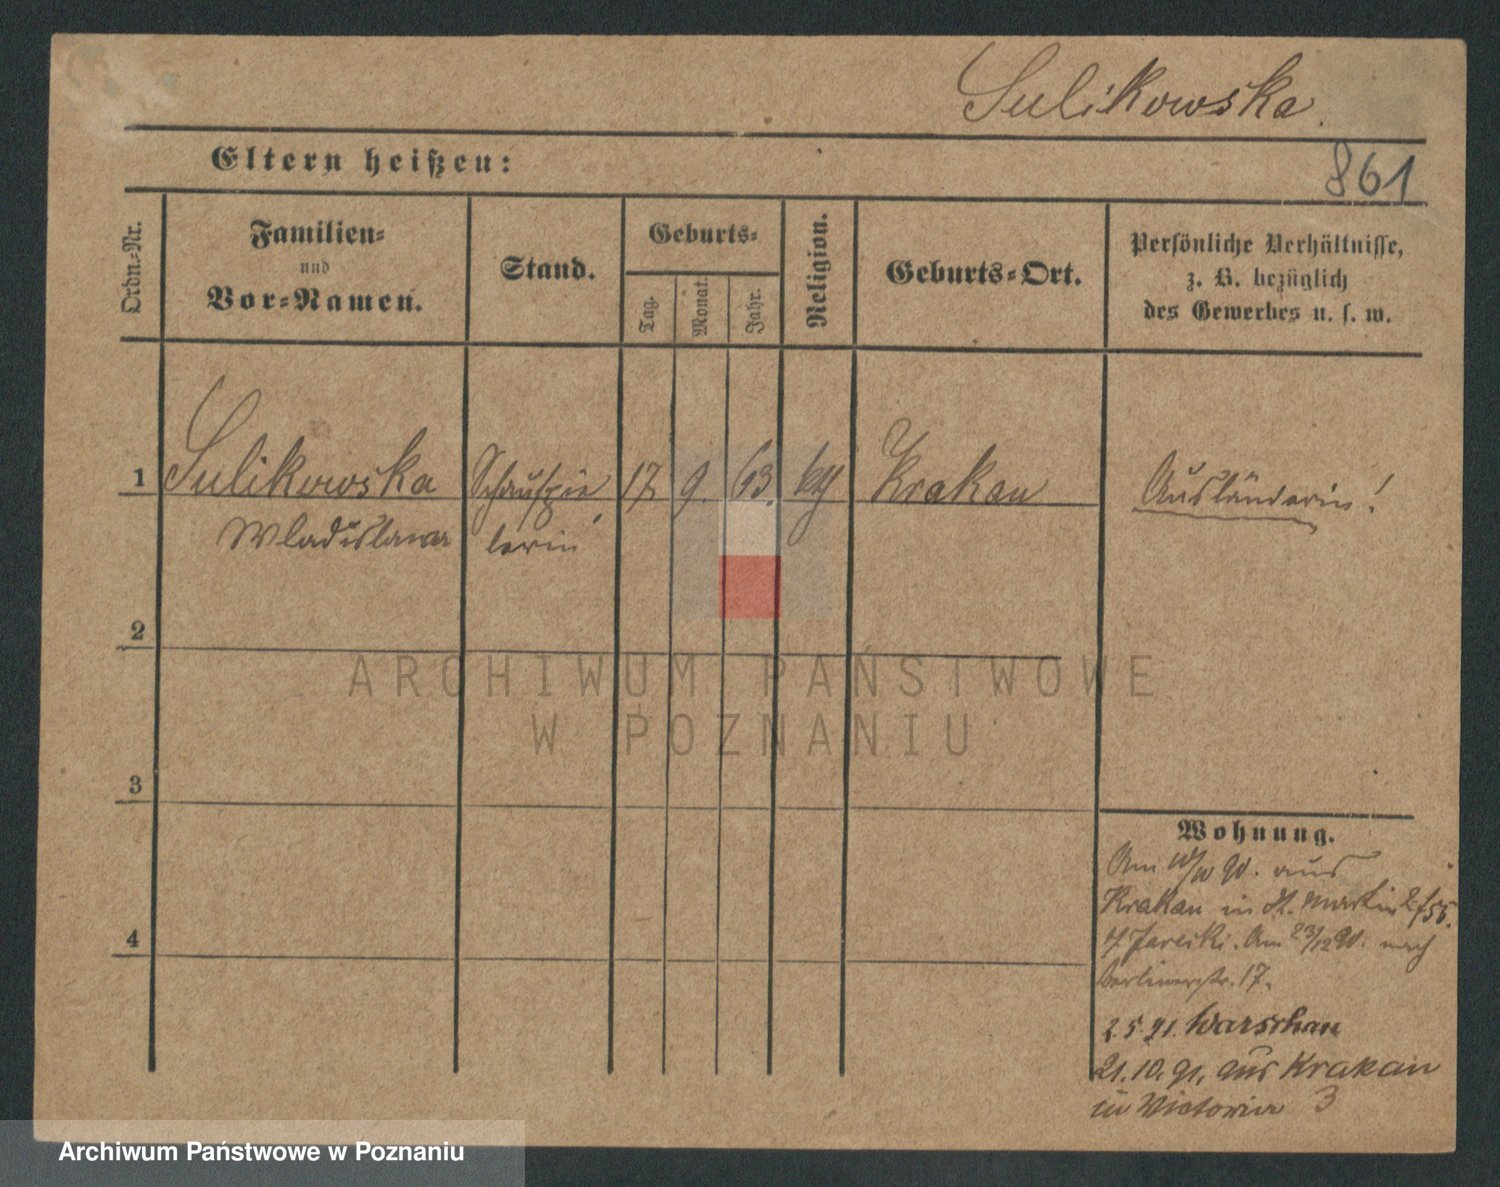 Sulikowska.
861
Eltern heißen:
Ordn.-Nr.
Familien-
und
Vor-Namen.
Stand.
Geburts-
Tag.
Monat.
Jahr.
Religion.
Geburts-Ort.
Persönliche Verhältnisse,
z. B. bezüglich
des Gewerbes u. s. w.
1 Sulikowska Schauspie 17 9. 63. kth Krakau Ausländerin!
Wladislawa lerin
2
ARCHIWUM PAŃSTWOWE
W POZNANIU
3
4
Wohnung.
Am 90. aus
Krakau in St. Martin 55.
Jarecki. Am 23/12 90. nach
Berlinerstr. 17.
2.5.91. Warschau
21.10.91. aus Krakau
in Victoria 3
Archiwum Państwowe w Poznaniu